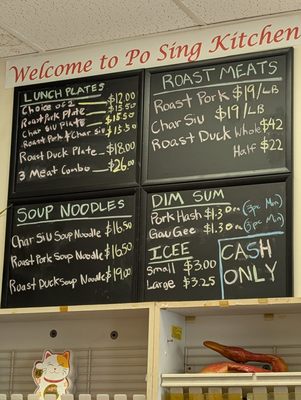 Welcome to Po Sing Kitchen
LUNCH PLATES
Choice of 2 $12.00
Roast Pork Plate $15.50
Char Siu Plate $15.50
Roast Pork & Char Siu $15.50
Roast Duck Plate $18.00
3 Meat Combo $26.00
ROAST MEATS
Roast Pork $19/LB
Char Siu $19/LB
Roast Duck Whole $42
Half $22
SOUP NOODLES
Char Siu Soup Noodle $16.50
Roast Pork Soup Noodle $16.50
Roast Duck Soup Noodle $19.00
DIM SUM
Pork Hash $1.30 ea (3pc Min)
Gau Gee $1.30 ea (3pc Min)
ICEE
Small $3.00
Large $3.25
CASH
ONLY